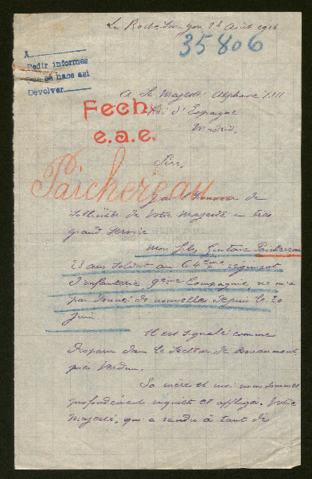 La Roche sur Yon 28 Août 1916
35806
A
Pedir informes
Devolver
A Sa Majesté Alphonse XIII
Roi d'Espagne
Madrid.
Fech.
e.a.e.
Sire,
Paichereau
J'ai l'honneur de
solliciter de Votre Majesté un très
grand service
Mon fils, Gustave Paichereau
23 ans soldat au 64eme régiment
d'infanterie, 9eme Compagnie, ne m'a
pas donné de nouvelles depuis le 20
juin
Il est signalé comme
disparu dans le secteur de Douaumont,
près Verdun.
Sa mère et moi nous sommes
profondément inquiets et affligés. Votre
Majesté, qui a rendu à tant de